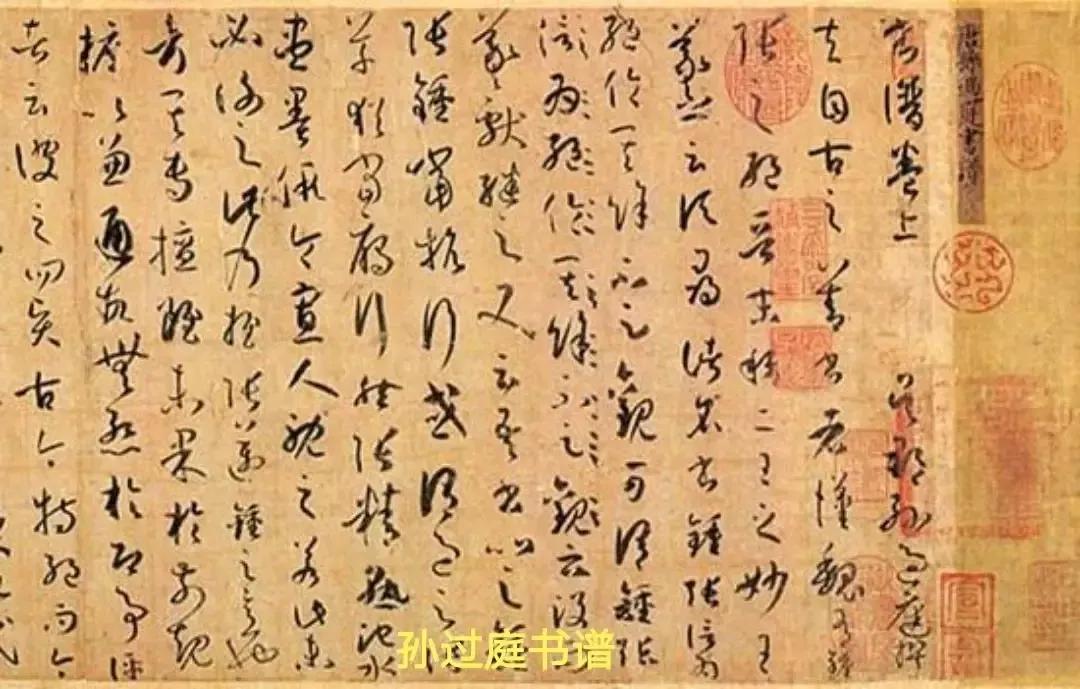 唐孫過庭書譜
書譜卷上 吳郡孫過庭撰
夫自古之善書者漢魏有鍾
張之絕晉末稱二王之妙王
羲之云頃尋諸名書鍾張信為
絕倫其餘不足觀可謂鍾張
信為絕倫其餘不足觀云沒
羲獻繼之又云吾書比之鍾
張鍾當抗行或謂過之張
草猶當雁行然張精熟池水
盡墨假令寡人耽之若此未
必謝之此乃推張邁鍾之意也
考其專擅雖未果於前規
摭以兼通故無慚於即事評
者云彼之四賢古今特絕而今
孙过庭书谱